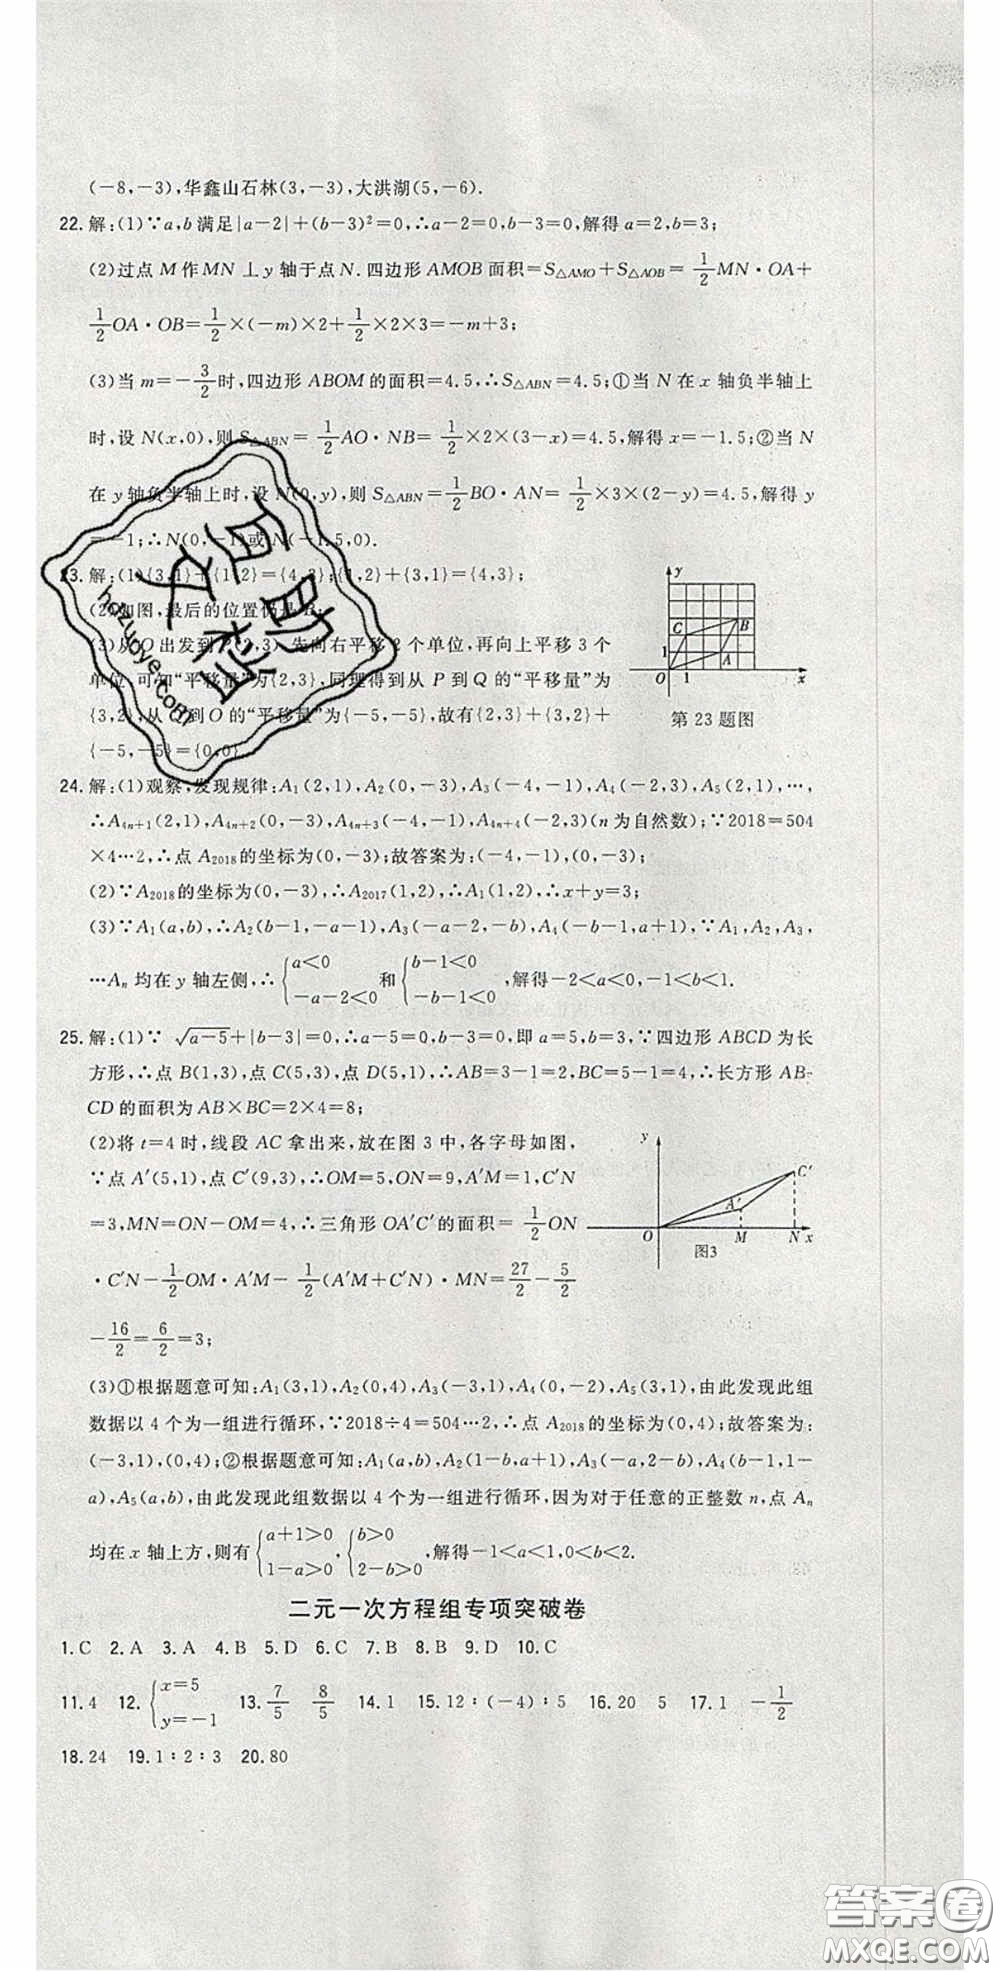 (-8,-3),华鑫山石林(3,-3),大洪湖(5,-6).
22.解:(1)∵a,b满足|a-2|+(b-3)²=0,∴a-2=0,b-3=0,解得a=2,b=3;
(2)过点M作MN⊥y轴于点N.四边形AMOB面积=S△AMO+S△AOB=1/2MN·OA+
1/2OA·OB=1/2×(-m)×2+1/2×2×3=-m+3;
(3)当m=-3/2时,四边形ABOM的面积=4.5,∴S△ABN=4.5;①当N在x轴负半轴上
时,设N(x,0),则S△ABN=1/2AO·NB=1/2×2×(3-x)=4.5,解得x=-1.5;②当N
在y轴负半轴上时,设N(0,y),则S△ABN=1/2BO·AN=1/2×3×(2-y)=4.5,解得y
=-1;∴N(0,-1)或N(-1.5,0).
23.解:(1){3,1}+{1,2}={4,3};{1,2}+{3,1}={4,3};
(2)如图,最后的位置仍是B;
(3)从O出发到P(2,3),先向右平移2个单位,再向上平移3个
单位,可知“平移量”为{2,3},同理得到从P到Q的“平移量”为
{3,2},从Q到O的“平移量”为{-5,-5},故有{2,3}+{3,2}+
{-5,-5}={0,0}
y
C
B
1
A
O 1 x
第23题图
24.解:(1)观察,发现规律:A₁(2,1),A₂(0,-3),A₃(-4,-1),A₄(-2,3),A₅(2,1),…,
∴A4n+1(2,1),A4n+2(0,-3),A4n+3(-4,-1),A4n+4(-2,3)(n为自然数);∵2018=504
×4…2,∴点A2018的坐标为(0,-3);故答案为:(-4,-1),(0,-3);
(2)∵A2018的坐标为(0,-3),∴A2017(1,2),∴A₁(1,2),∴x+y=3;
(3)∵A₁(a,b),∴A₂(b-1,-a-1),A₃(-a-2,-b),A₄(-b-1,a+1),∵A₁,A₂,A₃,
…Aₙ均在y轴左侧,∴{a<0 -a-2<0 和{b-1<0 -b-1<0,解得-2<a<0,-1<b<1.
25.解:(1)∵√(a-5)+|b-3|=0,∴a-5=0,b-3=0,即a=5,b=3,∵四边形ABCD为长
方形,∴点B(1,3),点C(5,3),点D(5,1),∴AB=3-1=2,BC=5-1=4,∴长方形AB-
CD的面积为AB×BC=2×4=8;
(2)将t=4时,线段AC拿出来,放在图3中,各字母如图,
∵点A′(5,1),点C′(9,3),∴OM=5,ON=9,A′M=1,C′N
=3,MN=ON-OM=4,∴三角形OA′C′的面积=1/2ON
·C′N-1/2OM·A′M-1/2(A′M+C′N)·MN=27/2-5/2
-16/2=6/2=3;
y
C′
A′
O M N x
图3
(3)①根据题意可知:A₁(3,1),A₂(0,4),A₃(-3,1),A₄(0,-2),A₅(3,1),由此发现此组
数据以4个为一组进行循环,∵2018÷4=504…2,∴点A2018的坐标为(0,4);故答案为:
(-3,1),(0,4);②根据题意可知:A₁(a,b),A₂(1-b,a+1),A₃(-a,2-b),A₄(b-1,1-
a),A₅(a,b),由此发现此组数据以4个为一组进行循环,因为对于任意的正整数n,点Aₙ
均在x轴上方,则有{a+1>0 1-a>0,{b>0 2-b>0,解得-1<a<1,0<b<2.
二元一次方程组专项突破卷
1.C 2.A 3.A 4.B 5.D 6.C 7.B 8.B 9.D 10.C
11.4 12.{x=5 y=-1 13.7/5 8/5 14.1 15.12:(-4):5 16.20 5 17.1 -1/2
18.24 19.1:2:3 20.80
hozuoye.com
答案卷
MXQE.COM